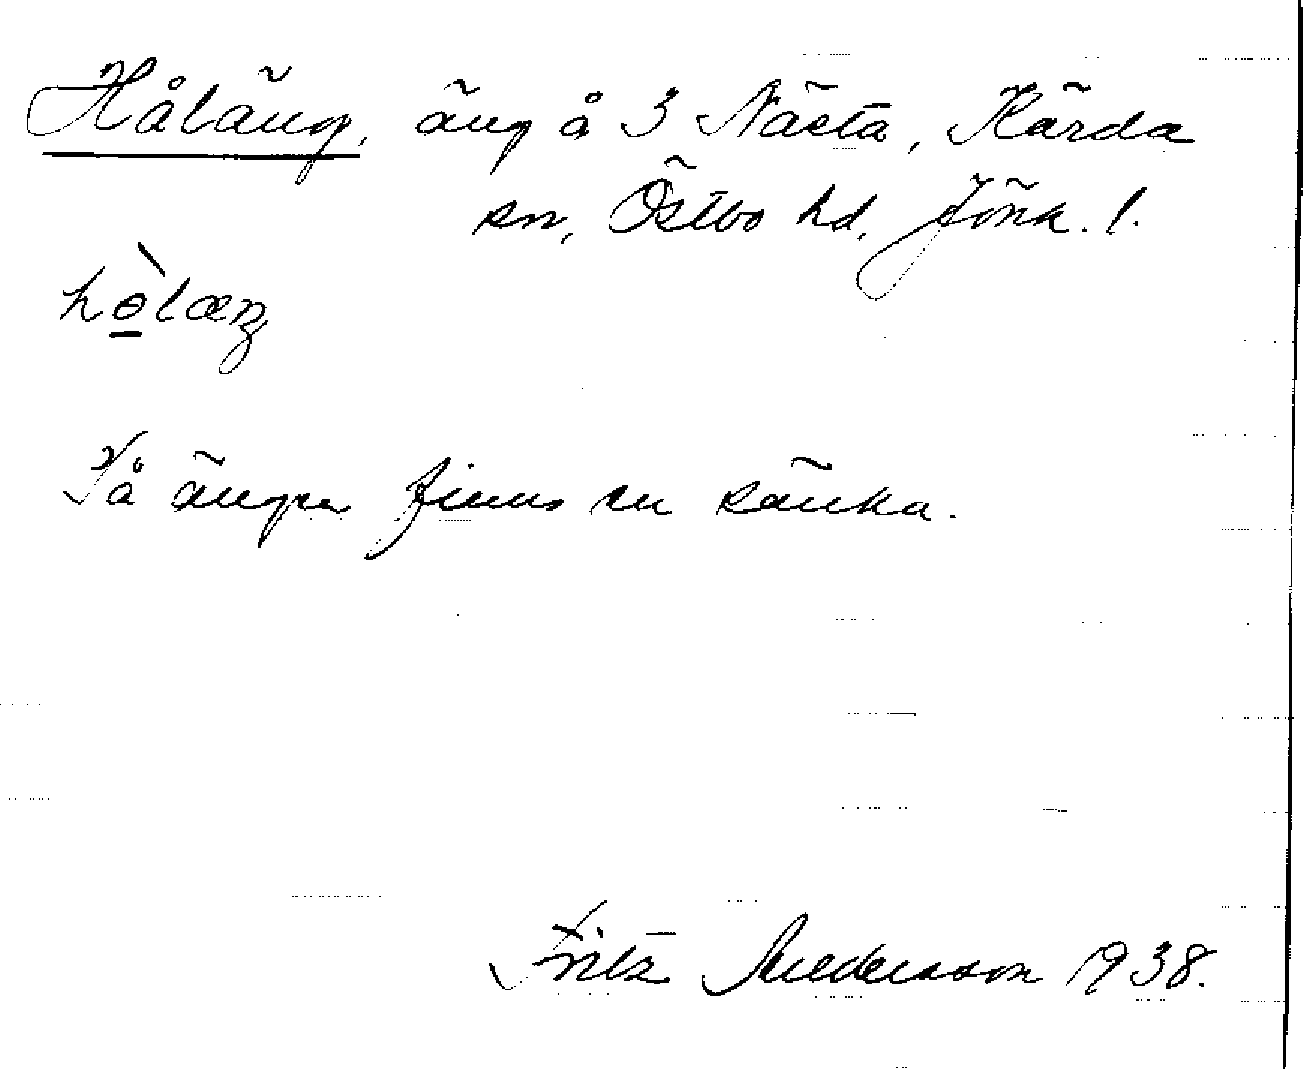 Håläng, äng å 3 Nästa, Kärda
sn, Östbo hd, Jönk. l.
hòlæŋ
På ängen finns en sänka.
Fritz Andersson 1938.